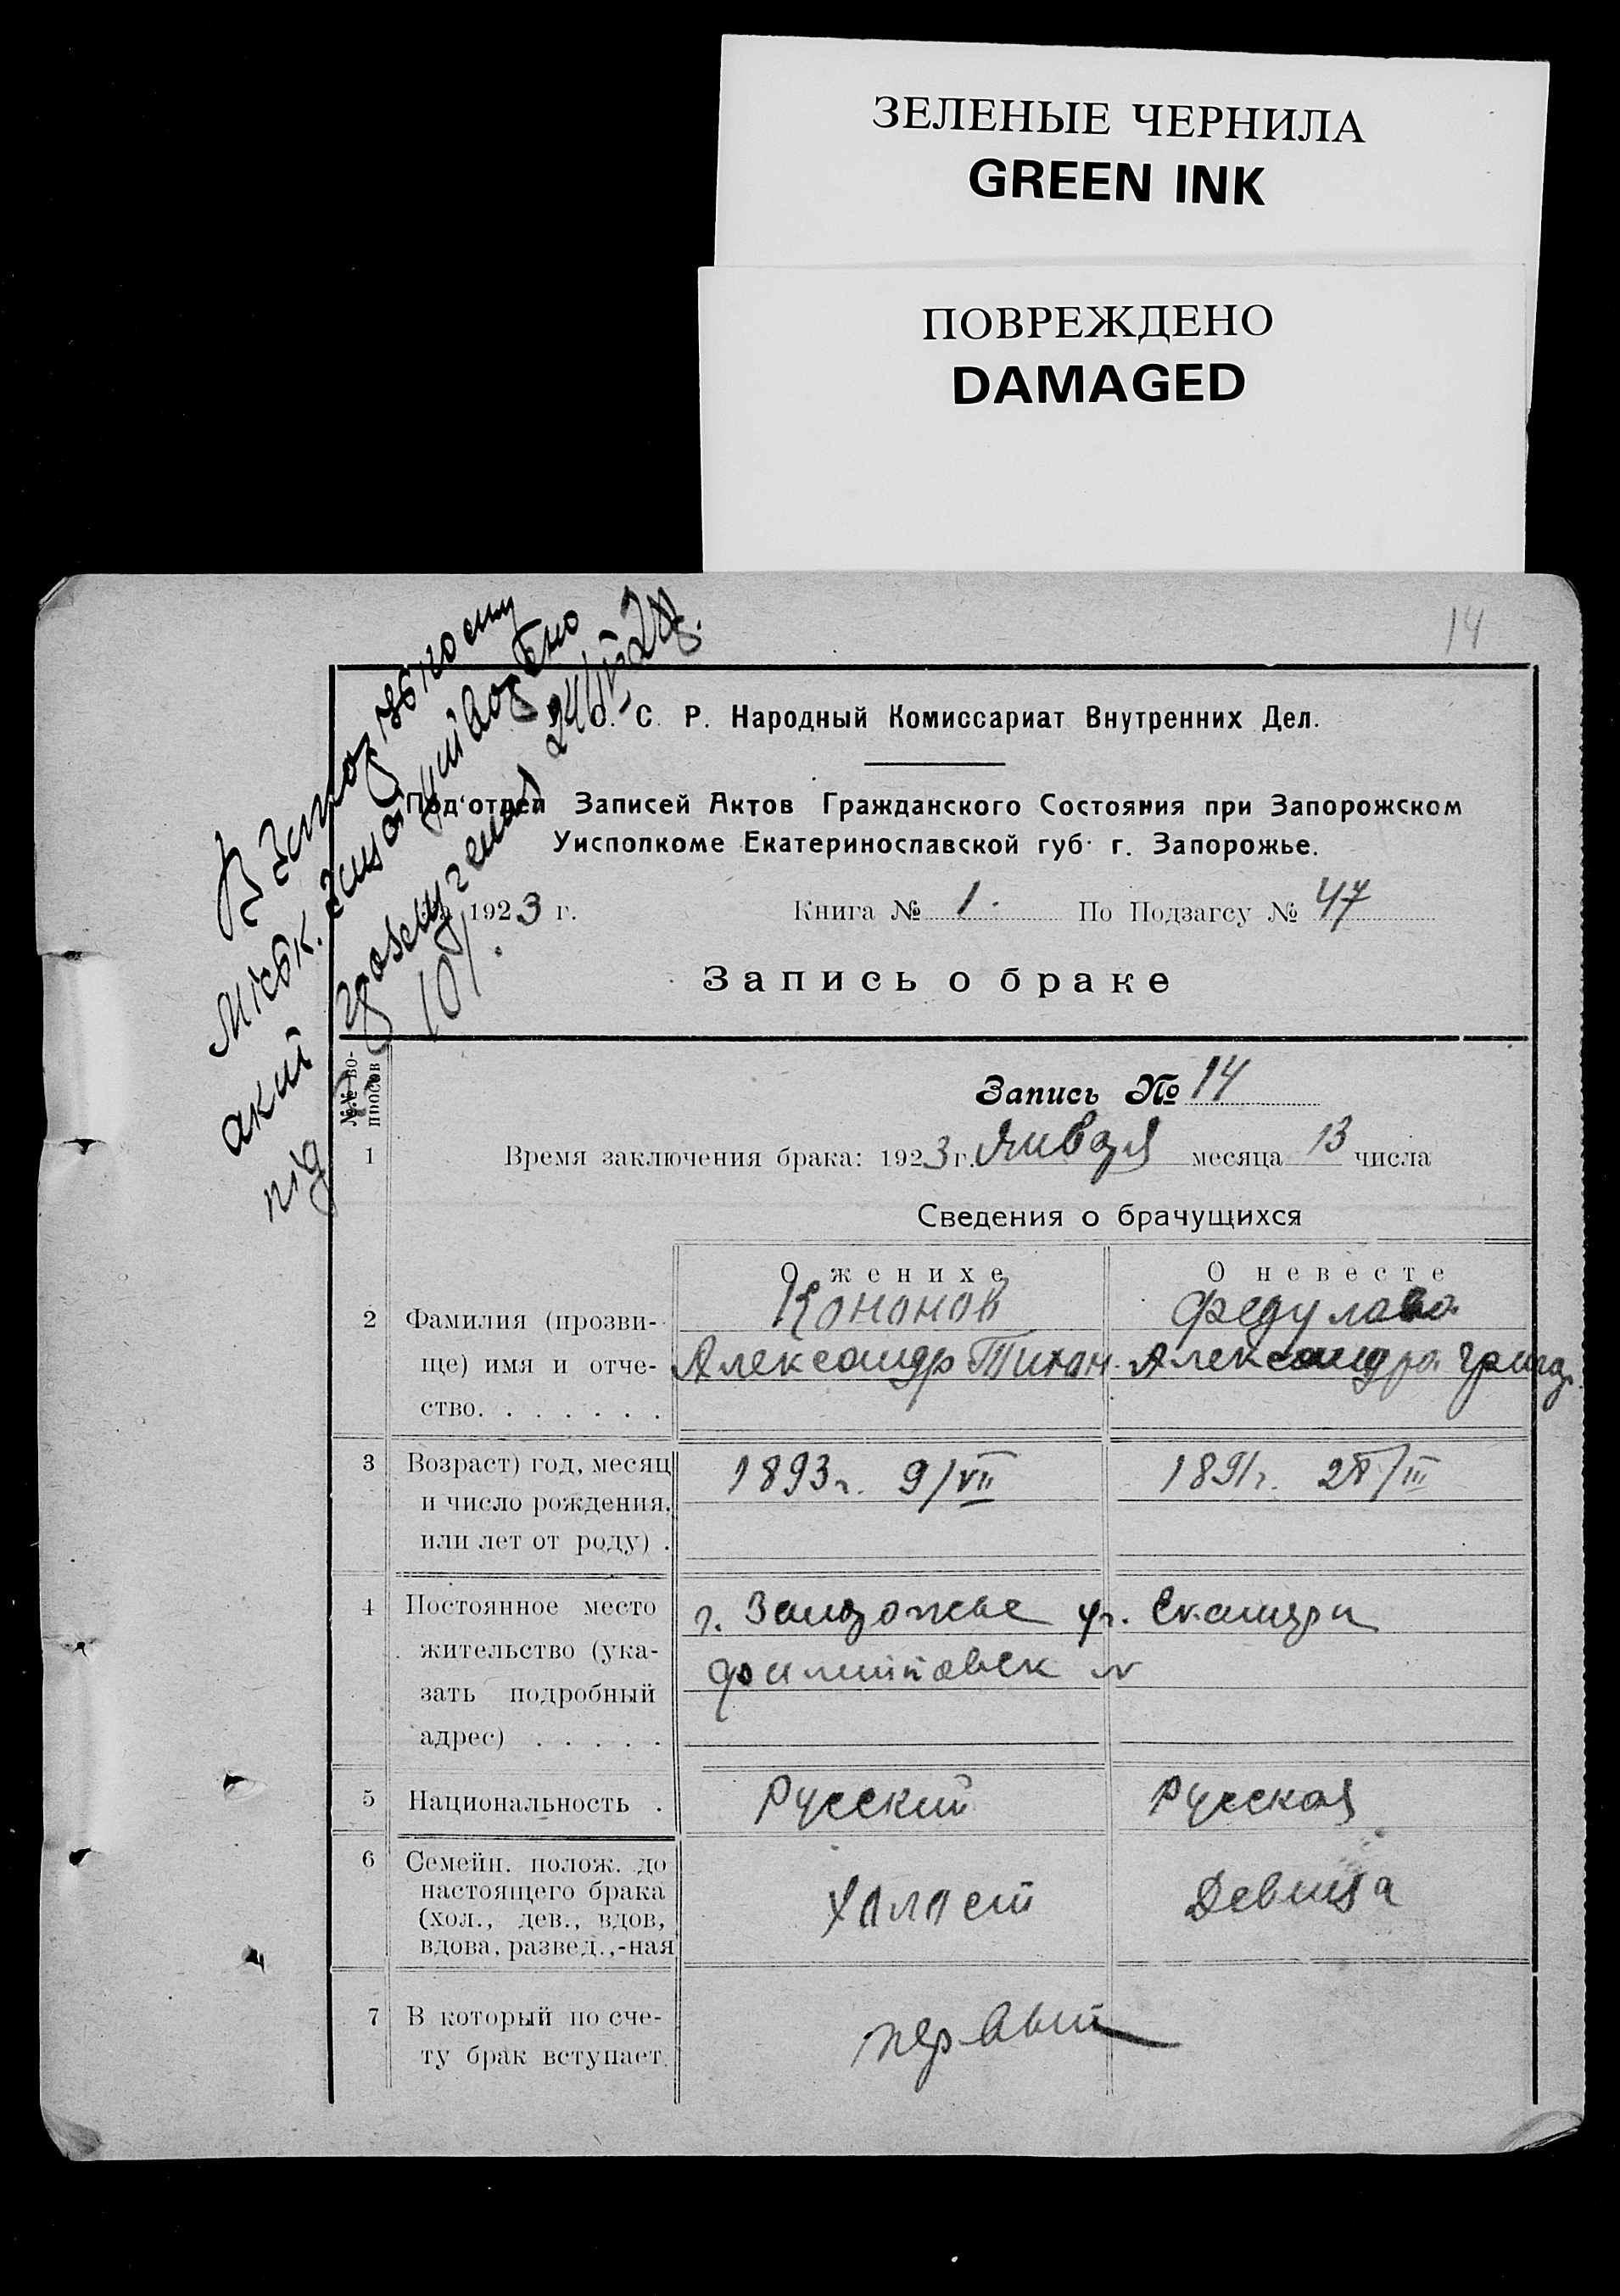 ЗЕЛЕНЫЕ ЧЕРНИЛА
GREEN INK
ПОВРЕЖДЕНО
DAMAGED
14
С. Р. Народный Комиссариат Внутренних Дел.
Под'отдел Записей Актов Гражданского Состояния при Запорожском
Уисполкоме Екатеринославской губ. г. Запорожье.
1923 г. Книга № 1. По Подзагсу № 47
Запись о браке
В Запорізькому
міськ.
який
під
№№ во-
просов
Запись № 14
1 Время заключения брака: 1923 г. Января месяца 13 числа
Сведения о брачущихся
О женихе О невесте
2 Фамилия (прозви- Кононов Федулова
ще) имя и отче- Александр Тихон. Александра Григ.
ство. . . . . . .
3 Возраст) год, месяц 1893 г. 9/VII 1891 г. /III
и число рождения.
или лет от роду) .
4 Постоянное место г. Запорожье
жительство (ука-
зать подробный
адрес) . . . . .
5 Национальность . Русский Русская
6 Семейн. полож. до
настоящего брака Халаст Девица
(хол., дев., вдов,
вдова, развед.,-ная
7 В который по сче- первый
ту брак вступает.